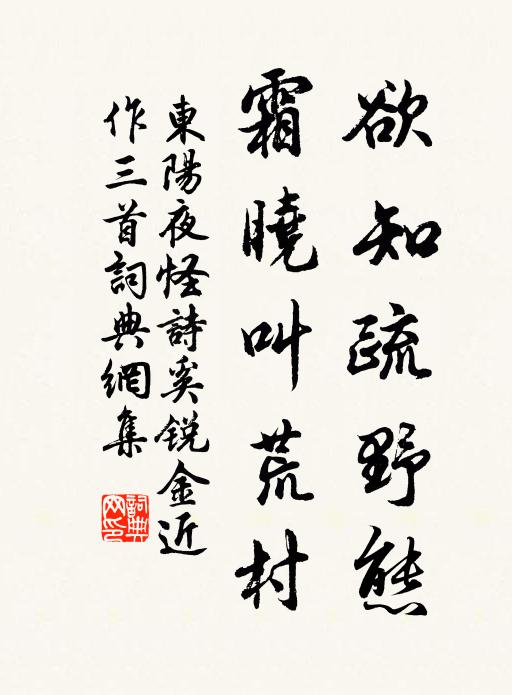 欲知疏野態
霜曉叫荒村
東陽夜怪詩奚銳金近
作三首詞典網集
詞典網印